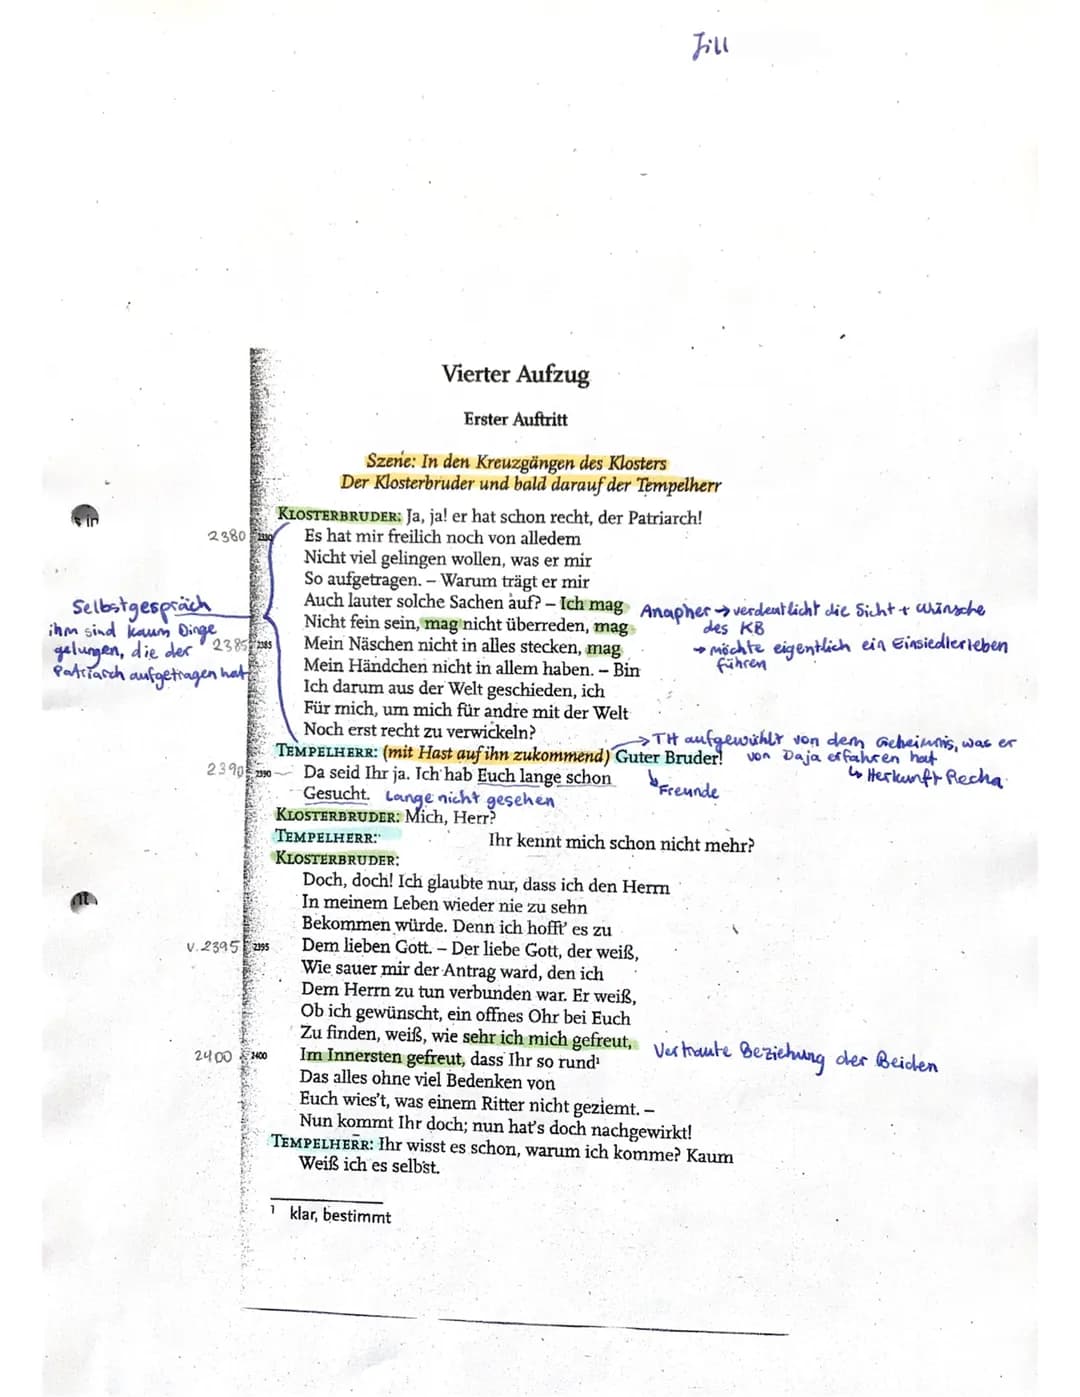 Jill
Vierter Aufzug
Erster Auftritt
Szene: In den Kreuzgängen des Klosters
Der Klosterbruder und bald darauf der Tempelherr
KLOSTERBRUDER: Ja, ja! er hat schon recht, der Patriarch!
2380 Es hat mir freilich noch von alledem
Nicht viel gelingen wollen, was er mir
So aufgetragen. – Warum trägt er mir
Auch lauter solche Sachen auf? – Ich mag
Nicht fein sein, mag nicht überreden, mag
2385 2385 Mein Näschen nicht in alles stecken, mag
Mein Händchen nicht in allem haben. – Bin
Ich darum aus der Welt geschieden, ich
Für mich, um mich für andre mit der Welt
Noch erst recht zu verwickeln?
Selbstgespräch
ihm sind kaum Dinge
gelungen, die der
Patriarch aufgetragen hat
Anapher → verdeutlicht die Sicht + Wünsche
des KB
→ möchte eigentlich ein Einsiedlerleben
führen
TEMPELHERR: (mit Hast auf ihn zukommend) Guter Bruder!
→ TH aufgewühlt von dem Geheimnis, was er
von Daja erfahren hat
↳ Herkunft Recha
Freunde
2390 2390 Da seid Ihr ja. Ich hab Euch lange schon
Gesucht. Lange nicht gesehen
KLOSTERBRUDER: Mich, Herr?
TEMPELHERR: Ihr kennt mich schon nicht mehr?
KLOSTERBRUDER:
Doch, doch! Ich glaubte nur, dass ich den Herrn
In meinem Leben wieder nie zu sehn
Bekommen würde. Denn ich hofft' es zu
V. 2395 2395 Dem lieben Gott. – Der liebe Gott, der weiß,
Wie sauer mir der Antrag ward, den ich
Dem Herrn zu tun verbunden war. Er weiß,
Ob ich gewünscht, ein offnes Ohr bei Euch
Zu finden, weiß, wie sehr ich mich gefreut,
2400 2400 Im Innersten gefreut, dass Ihr so rund¹
Vertraute Beziehung der Beiden
Das alles ohne viel Bedenken von
Euch wies't, was einem Ritter nicht geziemt. –
Nun kommt Ihr doch; nun hat's doch nachgewirkt!
TEMPELHERR: Ihr wisst es schon, warum ich komme? Kaum
Weiß ich es selbst.
¹ klar, bestimmt